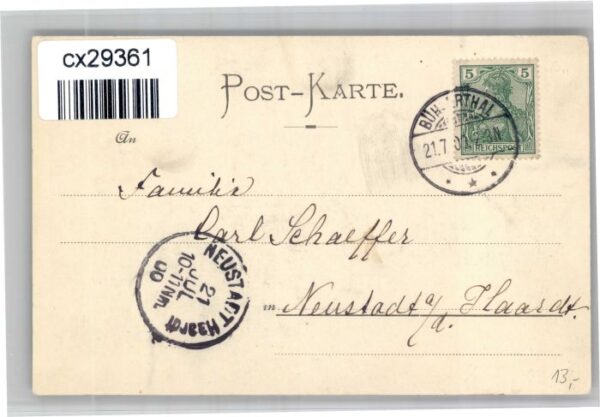 cx29361
POST-KARTE.
5 5
REICHSPOST
21.7.00
An
Familie
Carl Schaeffer
in Neustadt a/d. Haardt.
NEUSTADT Haardt
21
JUL
10-11 Nm.
00
13,-